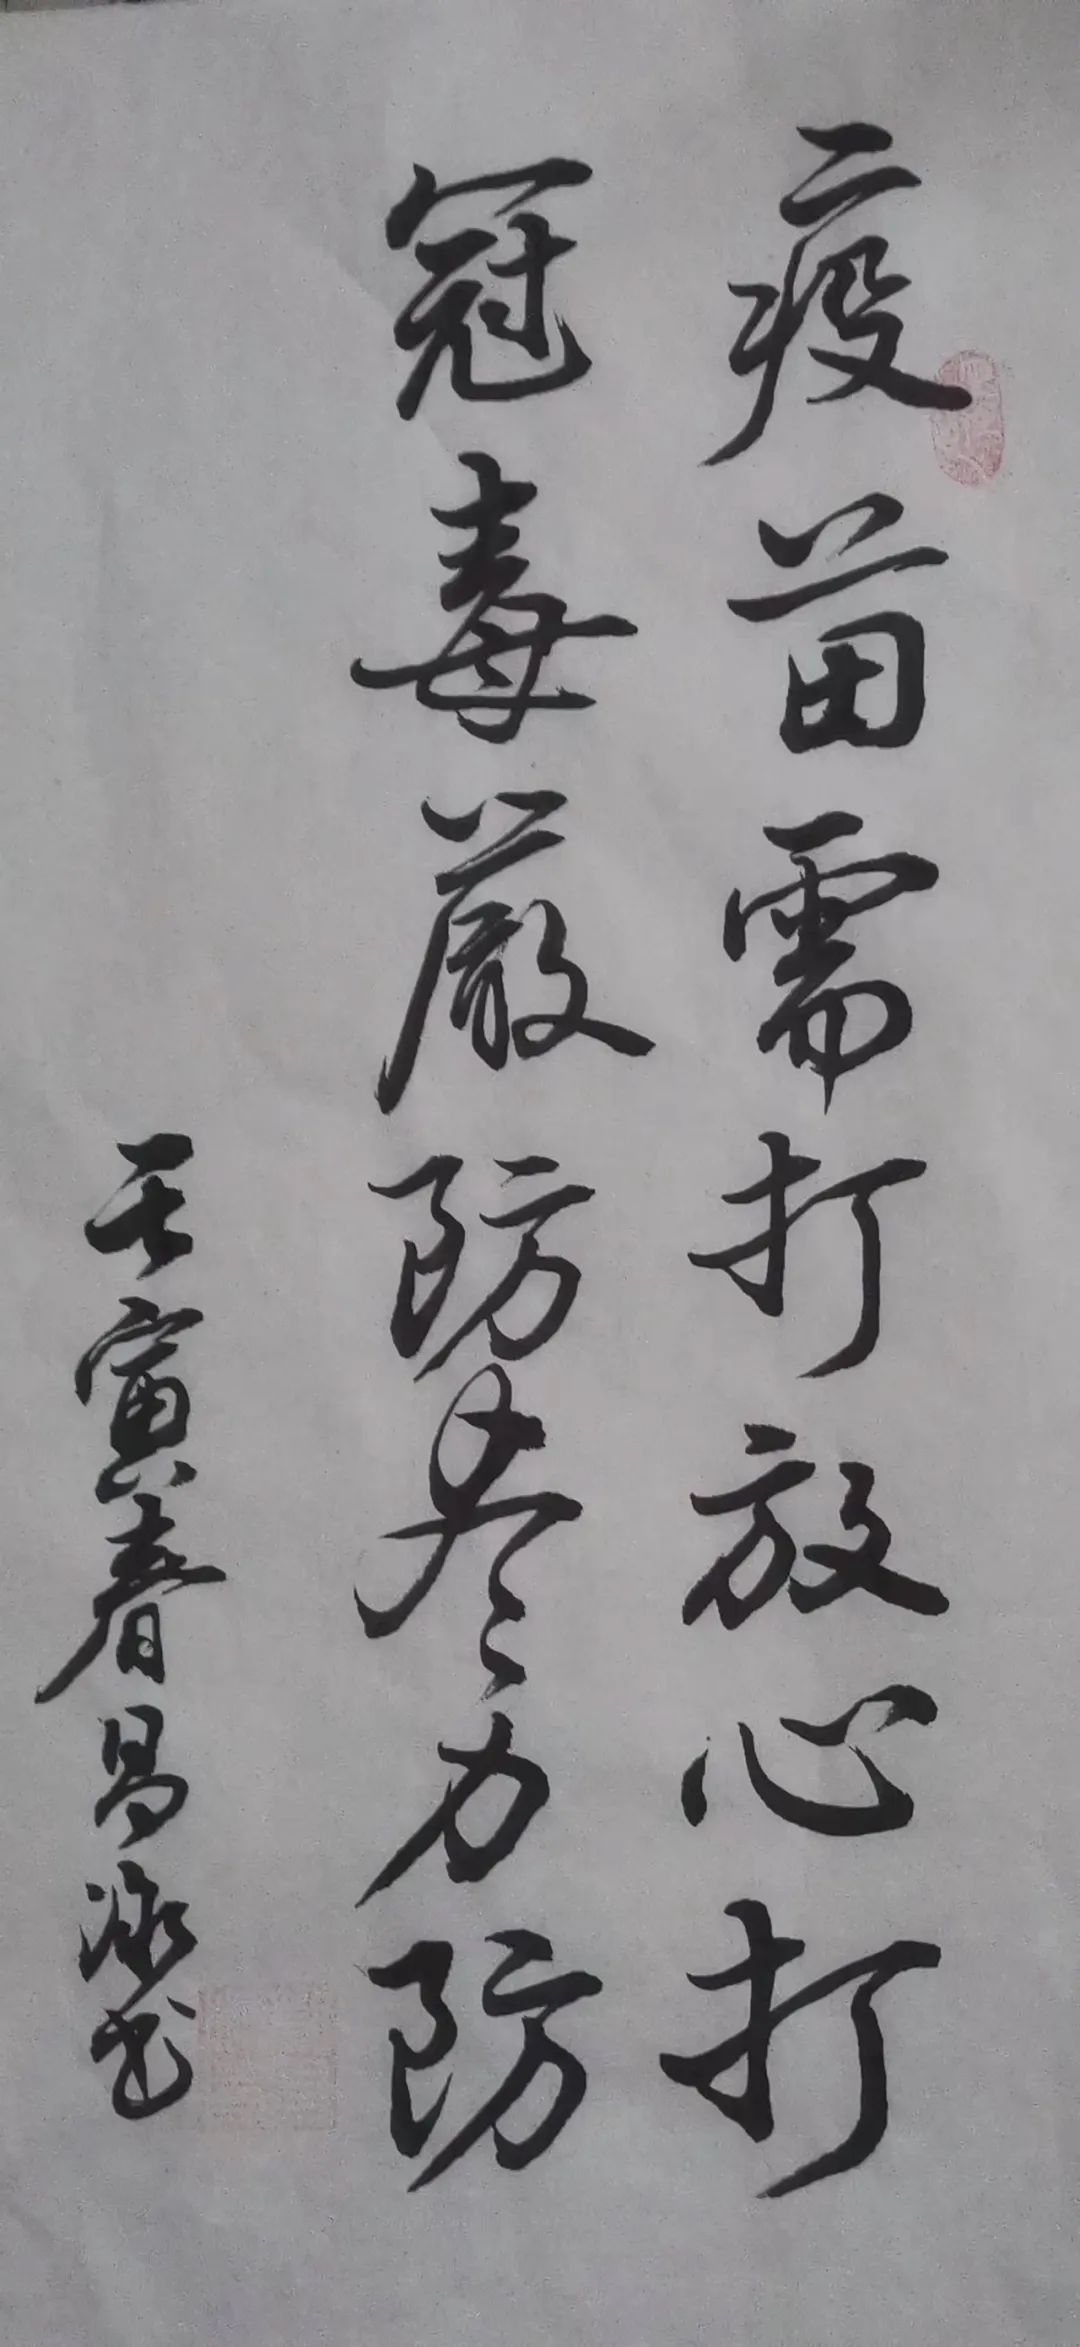 疫苗需打放心打
冠毒嚴防尽力防
壬寅春昌